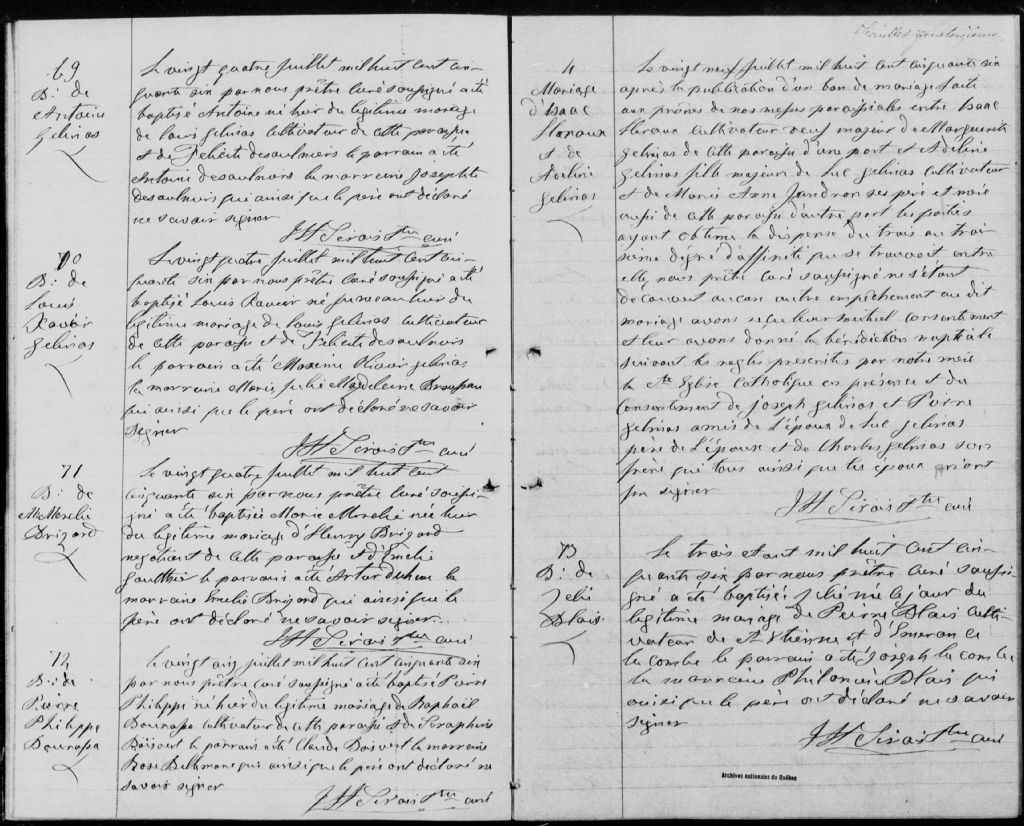 69
B: de
Antoine
Gelinas
Le vingt quatre juillet mil huit cent cin-
quante six par nous prêtre curé soussigné a été
baptisé Antoine né hier du légitime mariage
de Louis Gelinas cultivateur de cette paroisse
et de Felicité Desaulniers le parrain a été
Antoine Desaulniers la marraine Josephte
Desaulniers qui ainsi que le père ont déclaré
ne savoir signer
JH Sirois Ptre curé
70
B: de
Louis
Xavier
Gelinas
Le vingt quatre juillet mil huit cent cin-
quante six par nous prêtre curé soussigné a été
baptisé Louis Xavier né jumeau hier du
légitime mariage de Louis Gelinas cultivateur
de cette paroisse et de Felicité Desaulniers
le parrain a été Maxime Gelinas
la marraine Marie Julie Magdeleine
qui ainsi que le père ont déclaré ne savoir
signer
JH Sirois Ptre curé
71
B: de
M Merelie
Brizard
Le vingt quatre juillet mil huit cent
cinquante six par nous prêtre curé soussi-
gné a été baptisée Marie Merelie née hier
du légitime mariage d'Henry Brizard
négotiant de cette paroisse et d'Emelie
Gauthier le parrain a été Artur la
marraine Emelie Brizard qui ainsi que le
père ont déclaré ne savoir signer
JH Sirois Ptre curé
72
B: de
Pierre
Philippe
Bournassa
Le vingt cinq juillet mil huit cent cinquante six
par nous prêtre curé soussigné a été baptisé Pierre
Philippe né hier du légitime mariage de Raphaël
Bournassa cultivateur de cette paroisse et de Séraphine
Boisvert le parrain a été Claude Boisvert la marraine
Rose qui ainsi que le père ont déclaré ne
savoir signer
JH Sirois Ptre curé
Feuillet quatorzième
4
Mariage
d'Isaac
Heroux
et de
Adeline
Gelinas
Le vingt neuf juillet mil huit cent cinquante six
après la publication d'un ban de mariage faite
aux prônes de nos messes paroissiales entre Isaac
Heroux cultivateur veuf majeur de Marguerite
Gelinas de cette paroisse d'une part et Adeline
Gelinas fille majeure de Luc Gelinas cultivateur
et de Marie Anne Jendron ses père et mère
aussi de cette paroisse d'autre part les parties
ayant obtenu la dispense du trois au troi-
sieme degré d'affinité qui se trouvait entre
elle, nous prêtre curé soussigné ne s'étant
découvert aucun autre empêchement au dit
mariage avons reçu leur mutuel consentement
et leur avons donné la bénédiction nuptiale
suivant les regles prescrites par notre mère
la Ste Eglise Catholique en présence et du
consentement de Joseph Gelinas et Pierre
Gelinas amis de l'époux de Luc Gelinas
père de l'épouse et de Charles Gelinas son
frère qui tous ainsi que les époux n'ont
pu signer
JH Sirois Ptre curé
73
B: de
Zelie
Blais
Le trois Aout mil huit cent cin-
quante six par nous prêtre curé soussi-
gné a été baptisée Zelie née le jour du
légitime mariage de Pierre Blais culti-
vateur de St Etienne et d'Emerence
la combe le parrain a été Joseph la combe
la marraine Philomène Blais qui
ainsi que le père ont déclaré ne savoir
signer
JH Sirois Ptre curé
Archives nationales du Québec